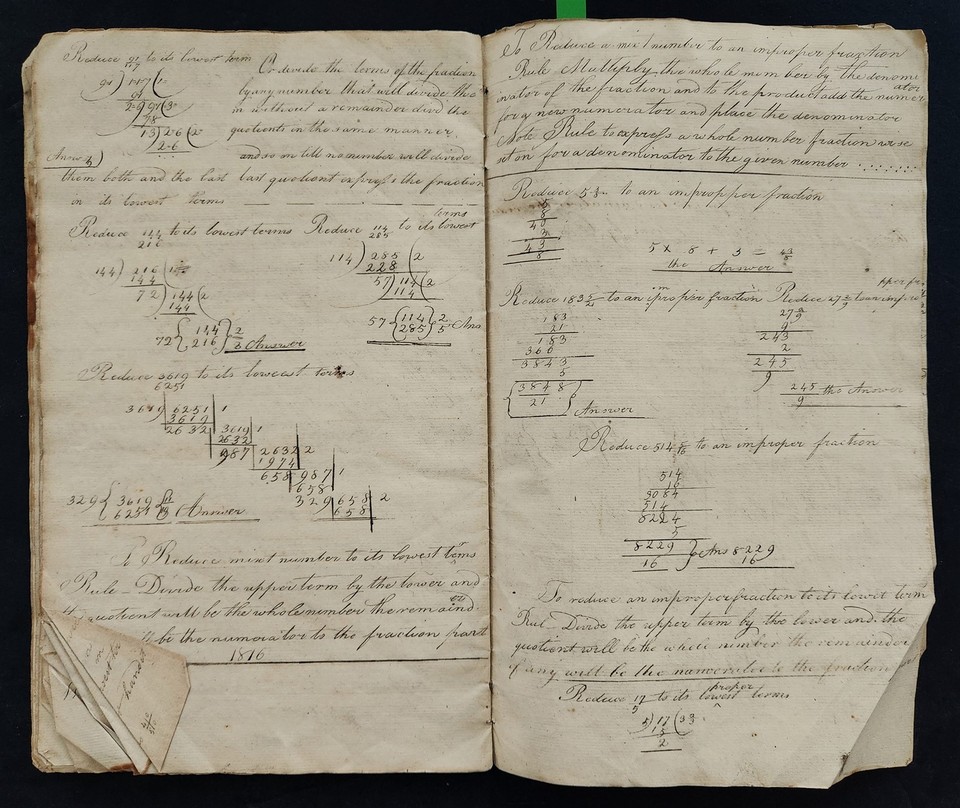 Reduce 91/117 to its lowest term
91) 117 (1
91
26) 91 (3
78
13) 26 (2
26
Or divide the terms of the fraction
by any number that will divide the
m without a remainder divid the
quotients in the same manner
and so on till no number will divide
them both and the last last quotient express the fraction
in its lowest terms
Reduce 144/216 to its lowest terms
144) 216 (1
144
72) 144 (2
144
72 { 144/216 } 2/3 Answer
Reduce 114/285 to its lowest terms
114) 285 (2
228
57) 114 (2
114
57 { 114/285 } 2/5 Ans
Reduce 3619/6251 to its lowest terms
3619 | 6251 | 1
3619
2632 | 3619 | 1
2632
987 | 2632 | 2
1974
658 | 987 | 1
658
329 | 658 | 2
658
329 { 3619/6251 { 11/19 } Answer
To Reduce mixt number to its lowest terms
Rule – Divide the upper term by the lower and
quotient will be the whole number the remainder
be the numerator to the fraction part
1816
To Reduce a mixt number to an improper fraction
Rule Multiply the whole number by the denomi
inator of the fraction and to the product add the numerator
for a new numerator and place the denominator
Note Rule to express a whole number fraction wise
sit on for a denominator to the given number
Reduce 5 3/8 to an impropper fraction
5
8
40
3
43
8
5 × 8 + 3 = 43/8
the Answer
Reduce 183 5/21 to an improper fraction
183
21
183
366
3843
5
3848
21
Answer
Reduce 27 2/9 to an impropper fra
27 2/9
9
243
2
245
9
245
9 the Answer
Reduce 514 5/16 to an improper fraction
514
16
3084
514
8224
5
8229
16
Ans 8229
16
To reduce an improper fraction to its lowest term
Rul – Divide the upper term by the lower and the
quotient will be the whole number the remainder
if any will be the numerator to the fraction
Reduce 17/5 to its proper lowest terms
5) 17 (3
15
2